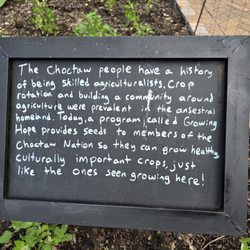 The Choctaw people have a history
of being skilled agriculturalists. Crop
rotation and building a community around
agriculture were prevalent in the ancestral
homeland. Today, a program called Growing
Hope provides seeds to members of the
Choctaw Nation so they can grow healthy,
culturally important crops, just
like the ones seen growing here!